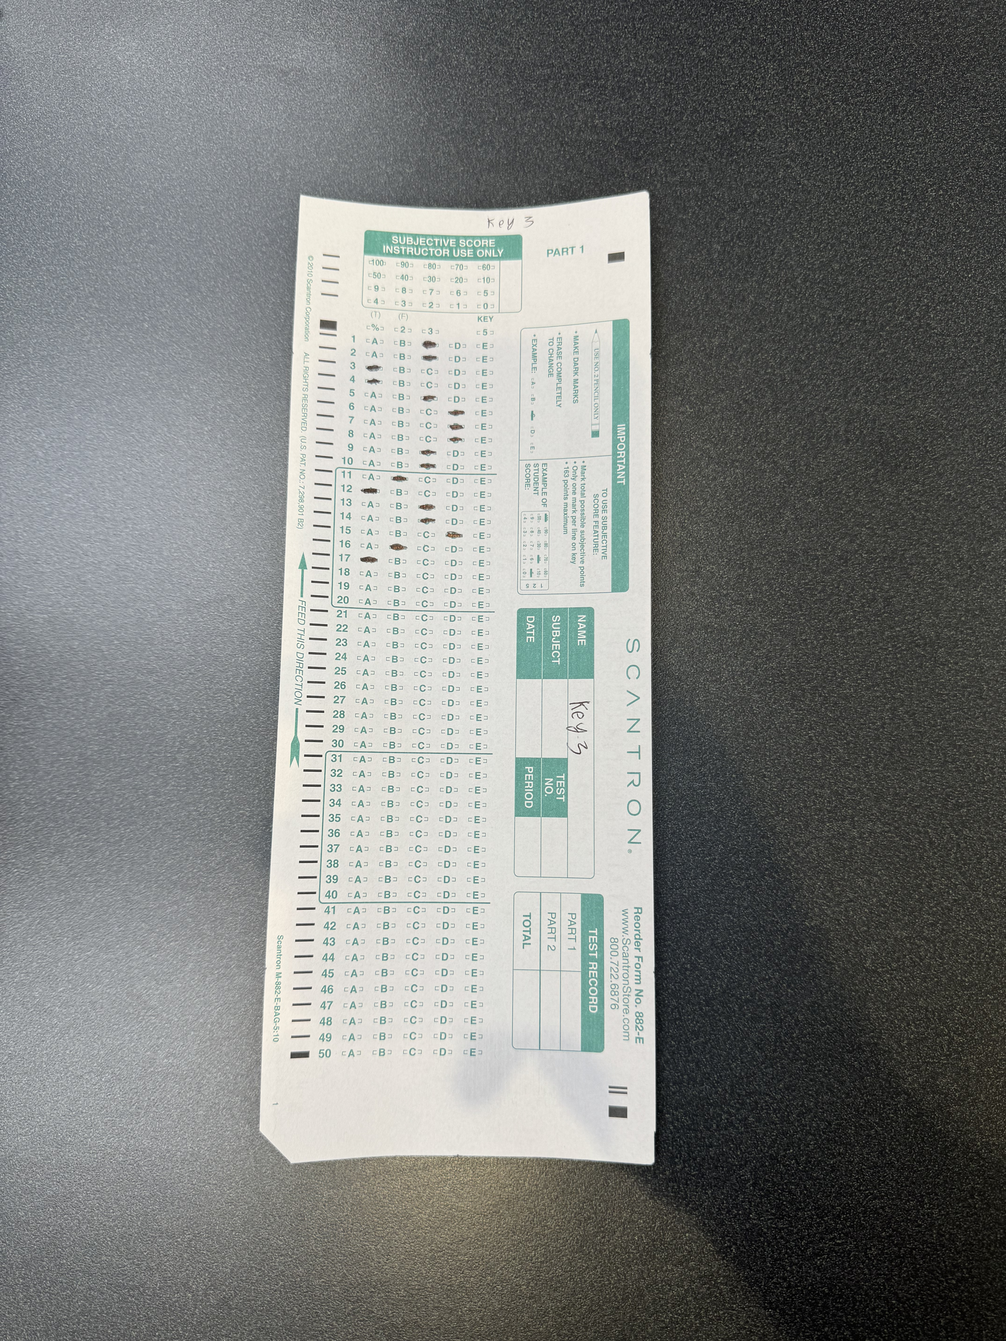 Key 3
SUBJECTIVE SCORE
INSTRUCTOR USE ONLY
100 90 80 70 60
50 40 30 20 10
9 8 7 6 5
4 3 2 1 0
PART 1
(T) (F) KEY
% 2 3 5
1 A B D E
2 A B D E
3 B C D E
4 B C D E
5 A B D E
6 A B C E
7 A B C E
8 A B C E
9 A B D E
10 A B D E
11 A C D E
12 B C D E
13 A B D E
14 A B D E
15 A B C E
16 A C D E
17 B C D E
18 A B C D E
19 A B C D E
20 A B C D E
21 A B C D E
22 A B C D E
23 A B C D E
24 A B C D E
25 A B C D E
26 A B C D E
27 A B C D E
28 A B C D E
29 A B C D E
30 A B C D E
31 A B C D E
32 A B C D E
33 A B C D E
34 A B C D E
35 A B C D E
36 A B C D E
37 A B C D E
38 A B C D E
39 A B C D E
40 A B C D E
41 A B C D E
42 A B C D E
43 A B C D E
44 A B C D E
45 A B C D E
46 A B C D E
47 A B C D E
48 A B C D E
49 A B C D E
50 A B C D E
IMPORTANT
USE NO. 2 PENCIL ONLY
• MAKE DARK MARKS
• ERASE COMPLETELY
TO CHANGE
• EXAMPLE: A B D E
TO USE SUBJECTIVE
SCORE FEATURE:
• Mark total possible subjective points
• Only one mark per line on key
• 163 points maximum
EXAMPLE OF
STUDENT
SCORE:
SCANTRON®
NAME Key 3
SUBJECT
TEST
NO.
DATE
PERIOD
Reorder Form No. 882-E
www.ScantronStore.com
800.722.6876
TEST RECORD
PART 1
PART 2
TOTAL
© 2010 Scantron Corporation ALL RIGHTS RESERVED. (U.S. PAT. NO.: 7,298,901 B2)
FEED THIS DIRECTION
Scantron M-882-E-BAG-5:10
1